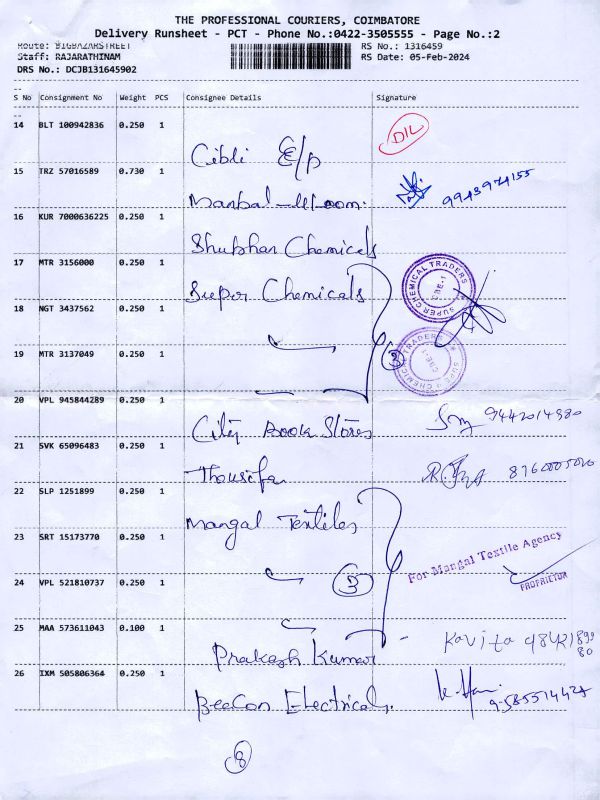 THE PROFESSIONAL COURIERS, COIMBATORE
Delivery Runsheet - PCT - Phone No.:0422-3505555 - Page No.:2
Route: BIGBAZARSTREET RS No.: 1316459
Staff: RAJARATHINAM RS Date: 05-Feb-2024
DRS No.: DCJB131645902
S No Consignment No Weight PCS Consignee Details Signature
14 BLT 100942836 0.250 1 Cibli E/p DIL
15 TRZ 57016589 0.730 1 9943974155
16 KUR 7000636225 0.250 1 Shubhan Chemicals
17 MTR 3156000 0.250 1 Super Chemicals SUPER CHEMICAL TRADERS CBE-1
18 NGT 3437562 0.250 1
19 MTR 3137049 0.250 1 3 SUPER CHEMICAL TRADERS CBE-1
20 VPL 945844289 0.250 1 City Book Stores 9442014980
21 SVK 65096483 0.250 1 Thousifa
22 SLP 1251899 0.250 1 Mangal Textiles
23 SRT 15173770 0.250 1 For Mangal Textile Agency
24 VPL 521810737 0.250 1 3 PROPRIETOR
25 MAA 573611043 0.100 1 Prakash Kumar Kavita
26 IXM 505806364 0.250 1 Beacon Electricals. 9585514427
8